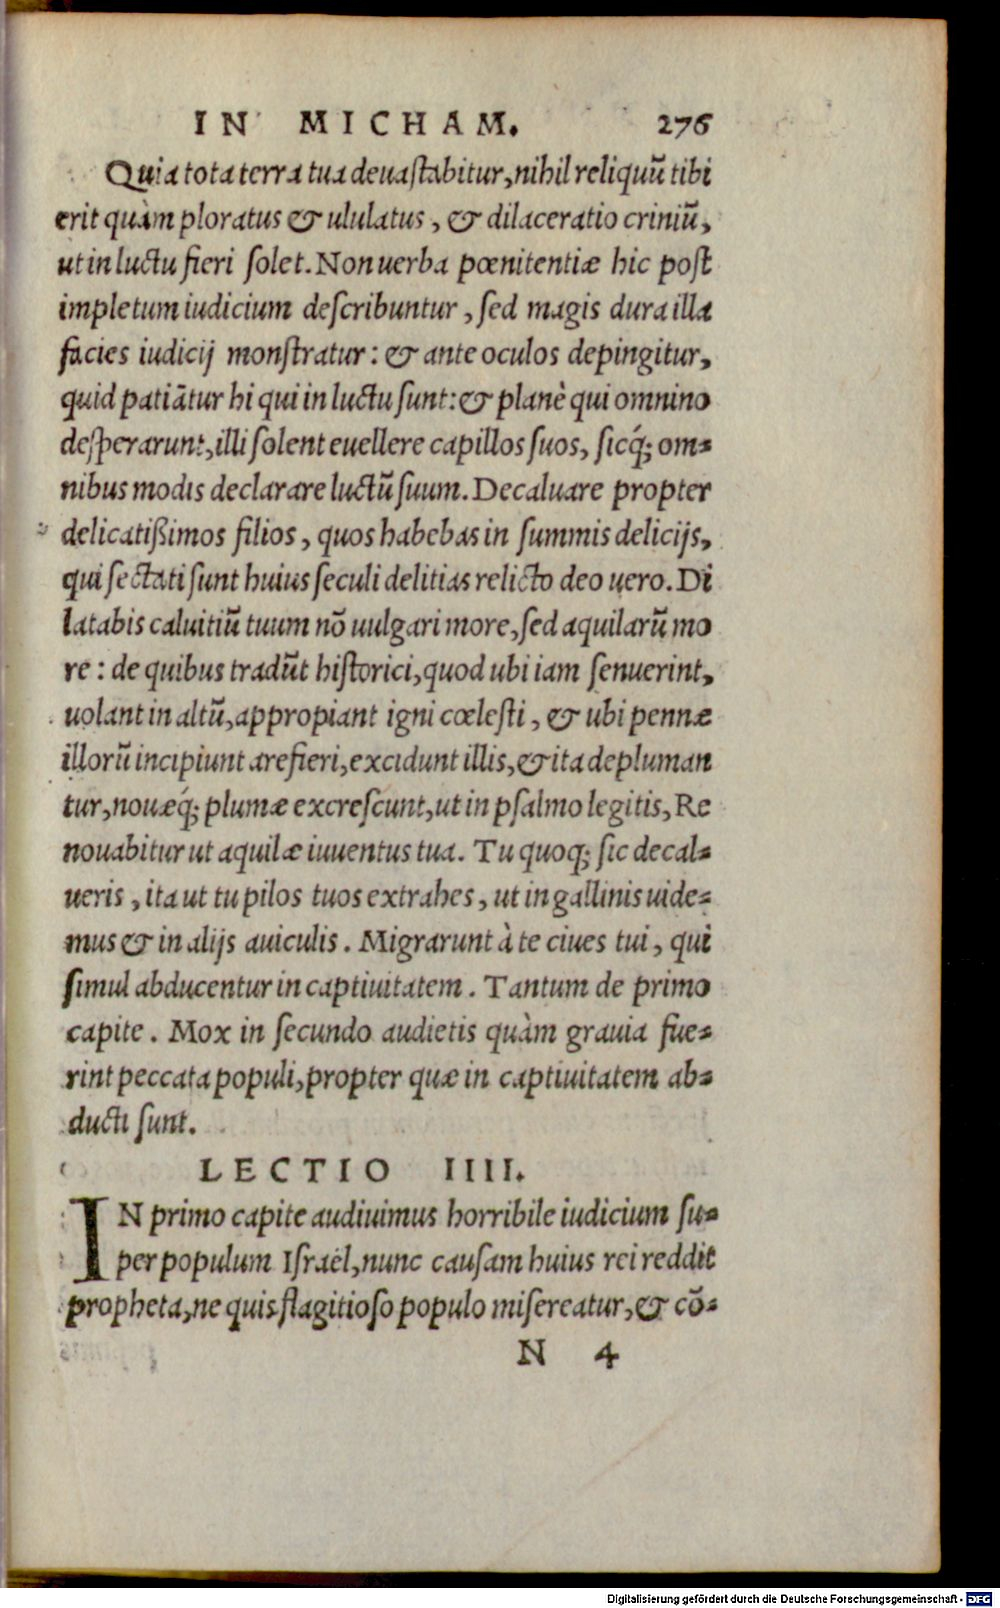 IN MICHAM. 276
Quia tota terra tua deuastabitur, nihil reliquū tibi
erit quàm ploratus & ululatus, & dilaceratio criniū,
ut in luctu fieri solet. Non uerba pœnitentiæ hic post
impletum iudicium describuntur, sed magis dura illa
facies iudicij monstratur: & ante oculos depingitur,
quid patiātur hi qui in luctu sunt: & planè qui omnino
desperarunt, illi solent euellere capillos suos, sicq́; om=
nibus modis declarare luctū suum. Decaluare propter
delicatißimos filios, quos habebas in summis delicijs,
qui sectati sunt huius seculi delitias relicto deo uero. Di
latabis caluitiū tuum nō uulgari more, sed aquilarū mo
re: de quibus tradūt historici, quod ubi iam senuerint,
uolant in altū, appropiant igni cœlesti, & ubi pennæ
illorū incipiunt arefieri, excidunt illis, & ita depluman
tur, nouæq́; plumæ excrescunt, ut in psalmo legitis, Re
nouabitur ut aquilæ iuuentus tua. Tu quoq; sic decal=
ueris, ita ut tu pilos tuos extrahes, ut in gallinis uide=
mus & in alijs auiculis. Migrarunt à te ciues tui, qui
simul abducentur in captiuitatem. Tantum de primo
capite. Mox in secundo audietis quàm grauia fue=
rint peccata populi, propter quæ in captiuitatem ab=
ducti sunt.
LECTIO IIII.
IN primo capite audiuimus horribile iudicium su=
per populum Israël, nunc causam huius rei reddit
propheta, ne quis flagitioso populo misereatur, & cō=
N 4
Digitalisierung gefördert durch die Deutsche Forschungsgemeinschaft - DFG